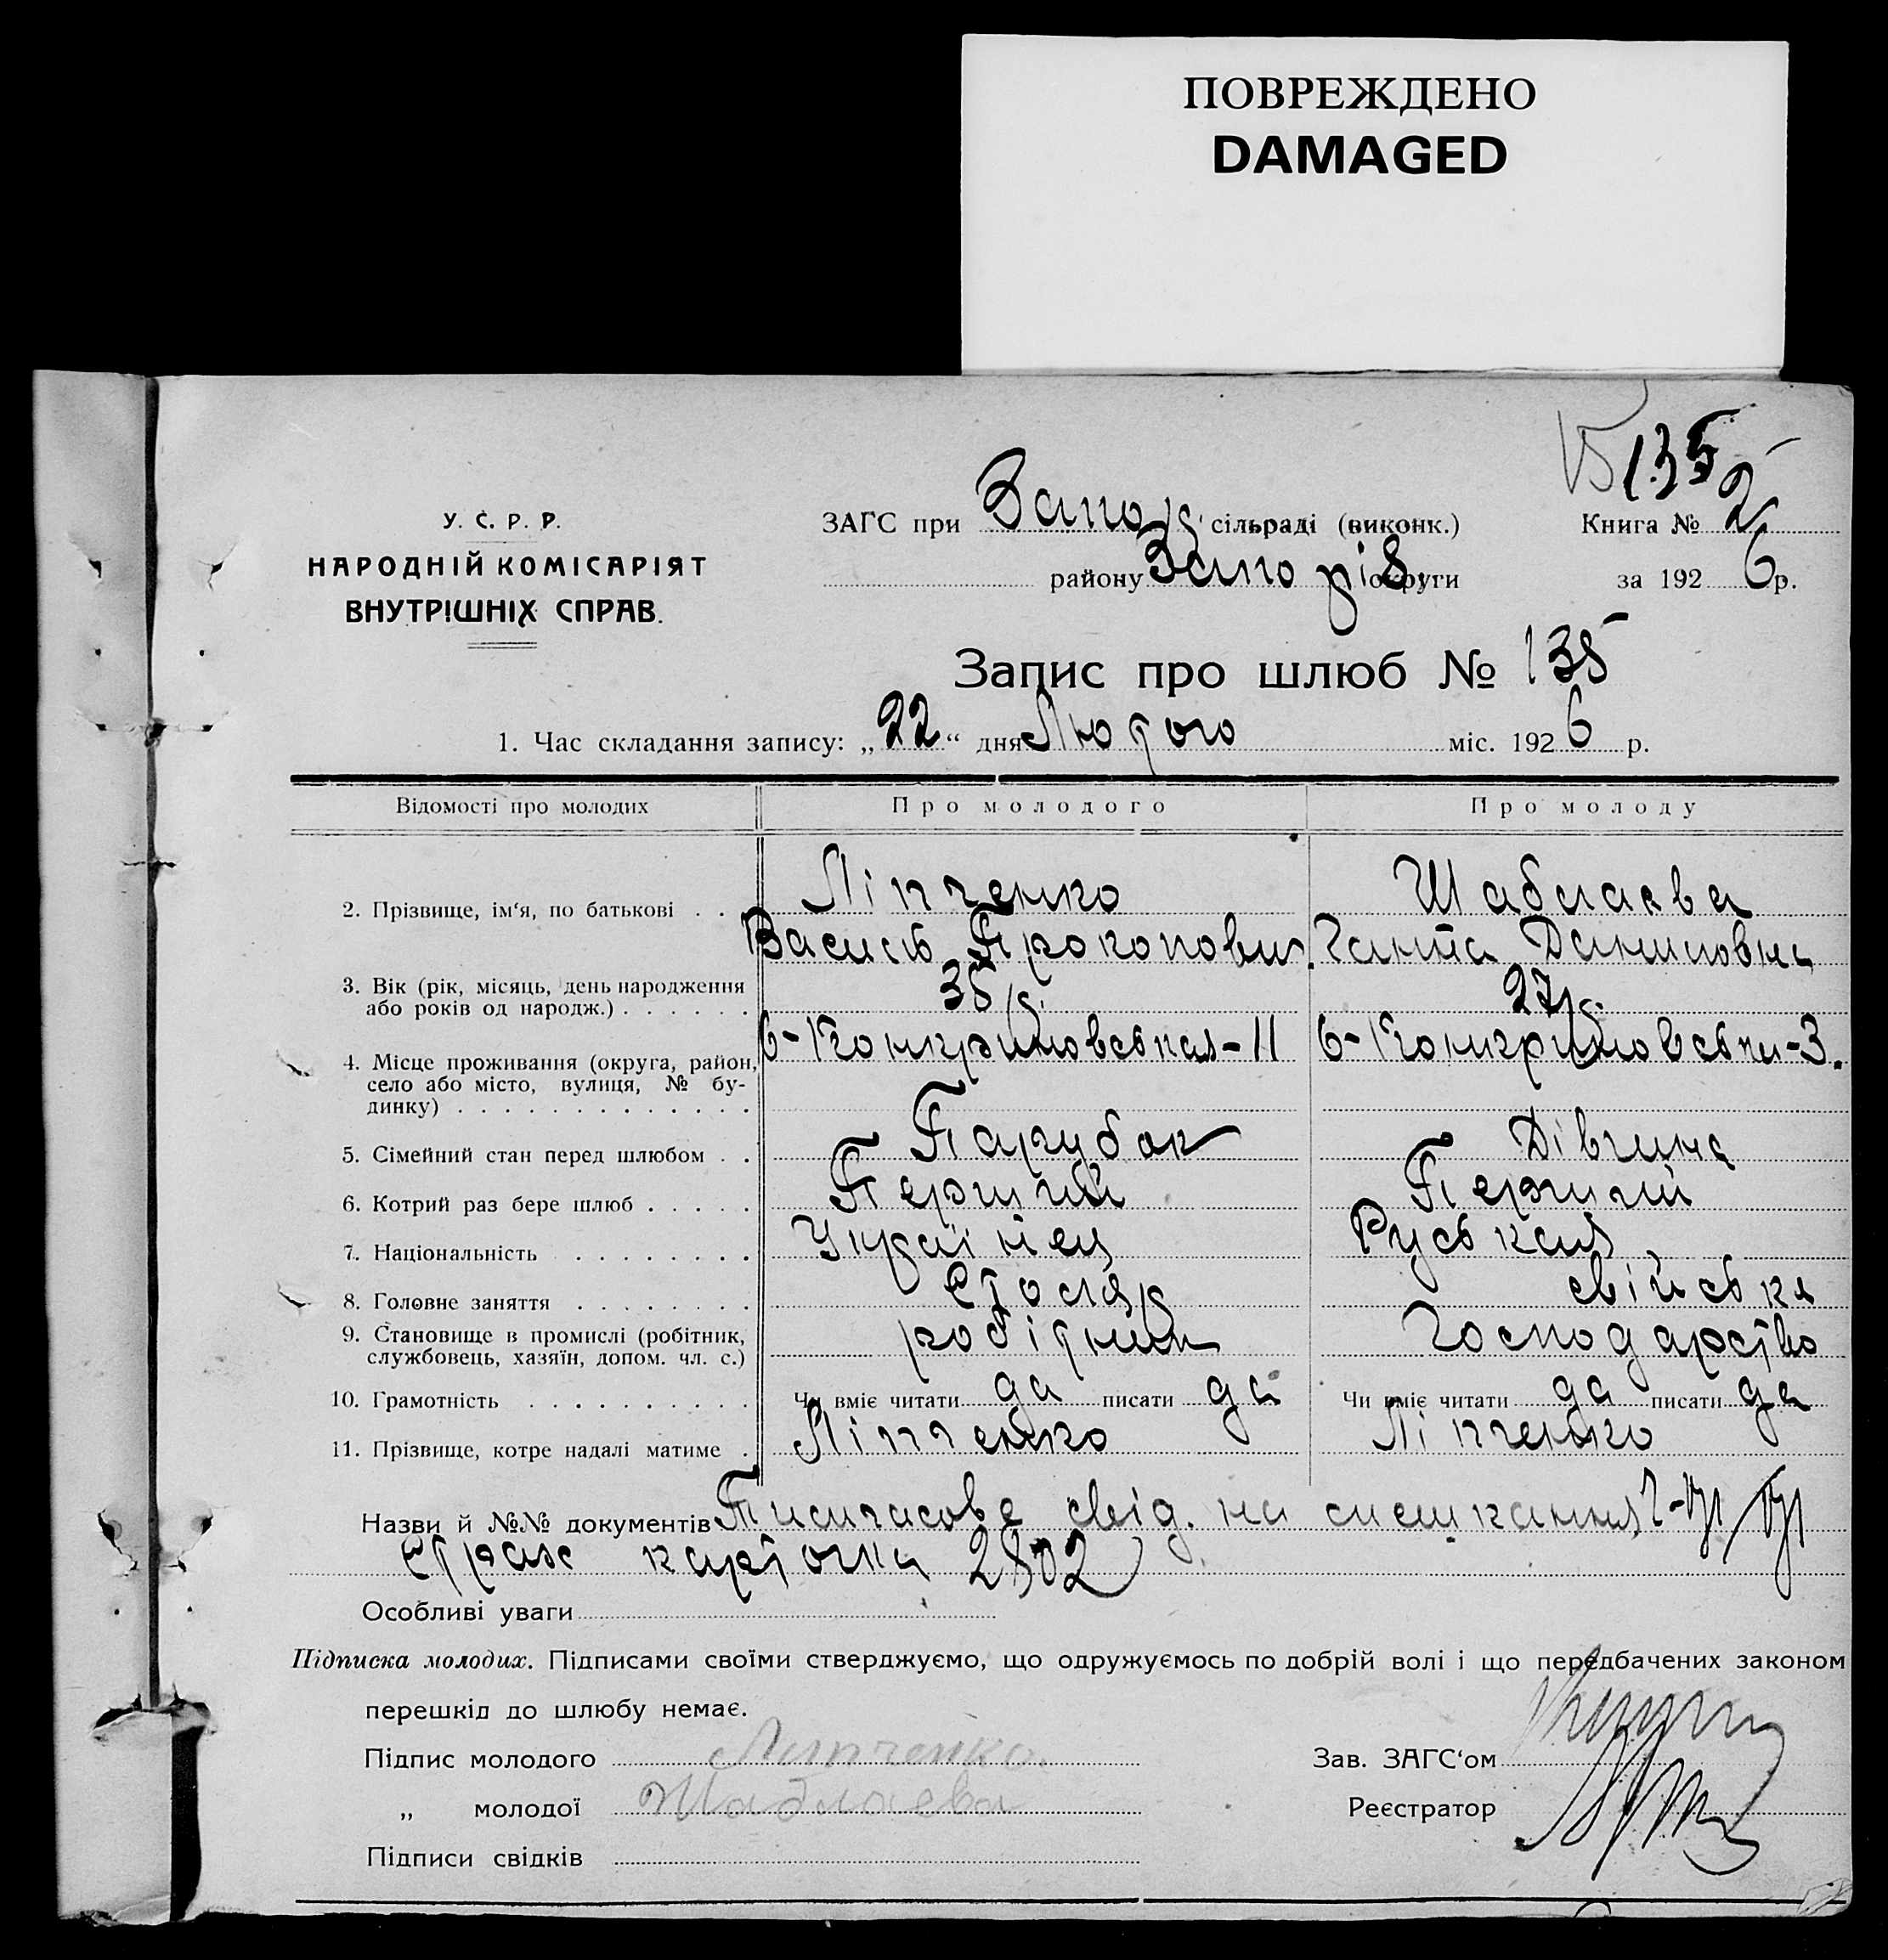 ПОВРЕЖДЕНО
DAMAGED
135
У. С. Р. Р.
НАРОДНІЙ КОМІСАРІЯТ
ВНУТРІШНІХ СПРАВ.
ЗАГС при Запор. сільраді (виконк.)
Книга № 2
району Запоріз. округи
за 192 6 р.
Запис про шлюб № 135
1. Час складання запису: „ 22 “ дня Лютого міс. 192 6 р.
Відомості про молодих Про молодого Про молоду
2. Прізвище, ім‘я, по батькові . . Ліпченко Шаблаєва
Василь Прокопович Ганна Даниловна
3. Вік (рік, місяць, день народження 35 р. 27 р.
або років од народж.) . . . . . .
4. Місце проживання (округа, район, 6- -11 6- -3.
село або місто, вулиця, № бу-
динку) . . . . . . . . . . . . .
5. Сімейний стан перед шлюбом . . Парубок Дівчина
6. Котрий раз бере шлюб . . . . . Перший Перший
7. Національність . . . . . . . . Українец Руськая
8. Головне заняття . . . . . . . . Столяр свійське
9. Становище в промислі (робітник, робітник Господарство
службовець, хазяїн, допом. чл. с.)
10. Грамотність . . . . . . . . . . Чи вміє читати да писати да Чи вміє читати да писати да
11. Прізвище, котре надалі матиме . Ліпченко Ліпченко
Назви й №№ документів Тимчасове свід. на
страх карточка 2802
Особливі уваги
Підписка молодих. Підписами своїми стверджуємо, що одружуємось по добрій волі і що передбачених законом
перешкід до шлюбу немає.
Підпис молодого Липченко.
Зав. ЗАГС‘ом
„ молодої Шаблаева
Реєстратор
Підписи свідків